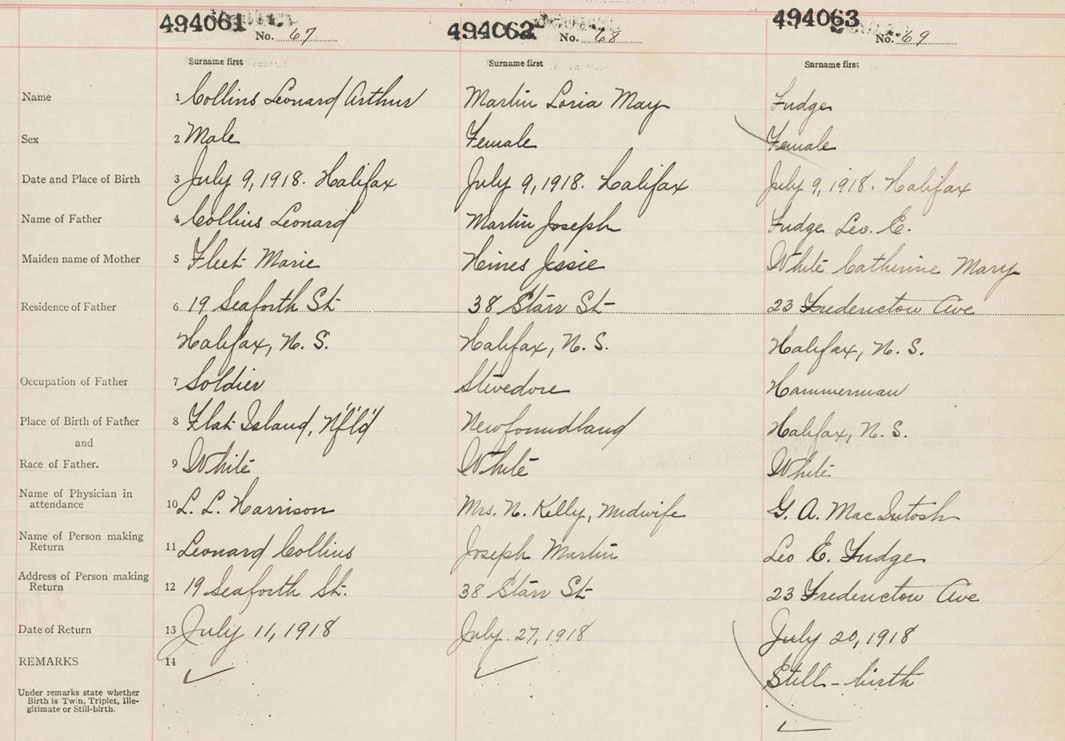 494061 494062 494063
No. 67 No. 68 No. 69
Surname first Surname first Surname first
Name 1 Collins Leonard Arthur Martin Loria May Fudge
Sex 2 Male Female Female
Date and Place of Birth 3 July 9, 1918. Halifax July 9, 1918. Halifax July 9, 1918. Halifax
Name of Father 4 Collins Leonard Martin Joseph Fudge Leo. E.
Maiden name of Mother 5 Fleet Marie Hines Jessie White Catherine Mary
Residence of Father 6 19 Seaforth St 38 Starr St 23 Fredericton Ave
Halifax, N. S. Halifax, N. S. Halifax, N. S.
Occupation of Father 7 Soldier Stevedore Hammerman
Place of Birth of Father 8 Flat Island, Nf'l'd Newfoundland Halifax, N. S.
and
Race of Father. 9 White White White
Name of Physician in
attendance 10 L. L. Harrison Mrs. N. Kelly, Midwife G. A. MacIntosh
Name of Person making
Return 11 Leonard Collins Joseph Martin Leo E. Fudge
Address of Person making
Return 12 19 Seaforth St. 38 Starr St 23 Fredericton Ave
Date of Return 13 July 11, 1918 July 27, 1918 July 20, 1918
REMARKS 14 Still-birth
Under remarks state whether
Birth is Twin, Triplet, Ille-
gitimate or Still-birth.